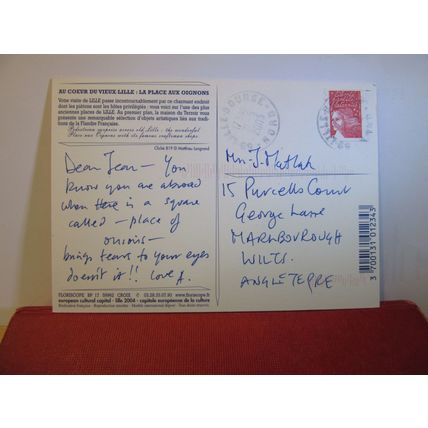 AU COEUR DU VIEUX-LILLE : LA PLACE AUX OIGNONS
Votre visite de LILLE passe incontournablement par ce charmant endroit
dont les piétons sont les hôtes privilégiés ; vous voici sur l'une des plus
anciennes places de LILLE. Au premier plan, la maison du Terroir vous
présente une remarquable sélection d'objets artistiques liés aux tradi-
tions de la Flandre Française.
Pedestrian surprise across old Lille : the wonderful
Place aux Oignons with its famous craftsmen shop.
Cliché 819 © Matthieu Langrand
Dear Jean - You
know you are abroad
when there is a square
called - place of
onions -
brings tears to your eyes
doesn't it!! Love A.
FLORISCOPE BP 12 59962 CROIX www.floriscope.fr
european cultural capital - lille 2004 - capitale européenne de la culture
LILLE BOURSE
Mrs. J.
15 Purcells Court
George Lane
MARLBOUROUGH
WILTS.
ANGLETERRE
3 700131 012343